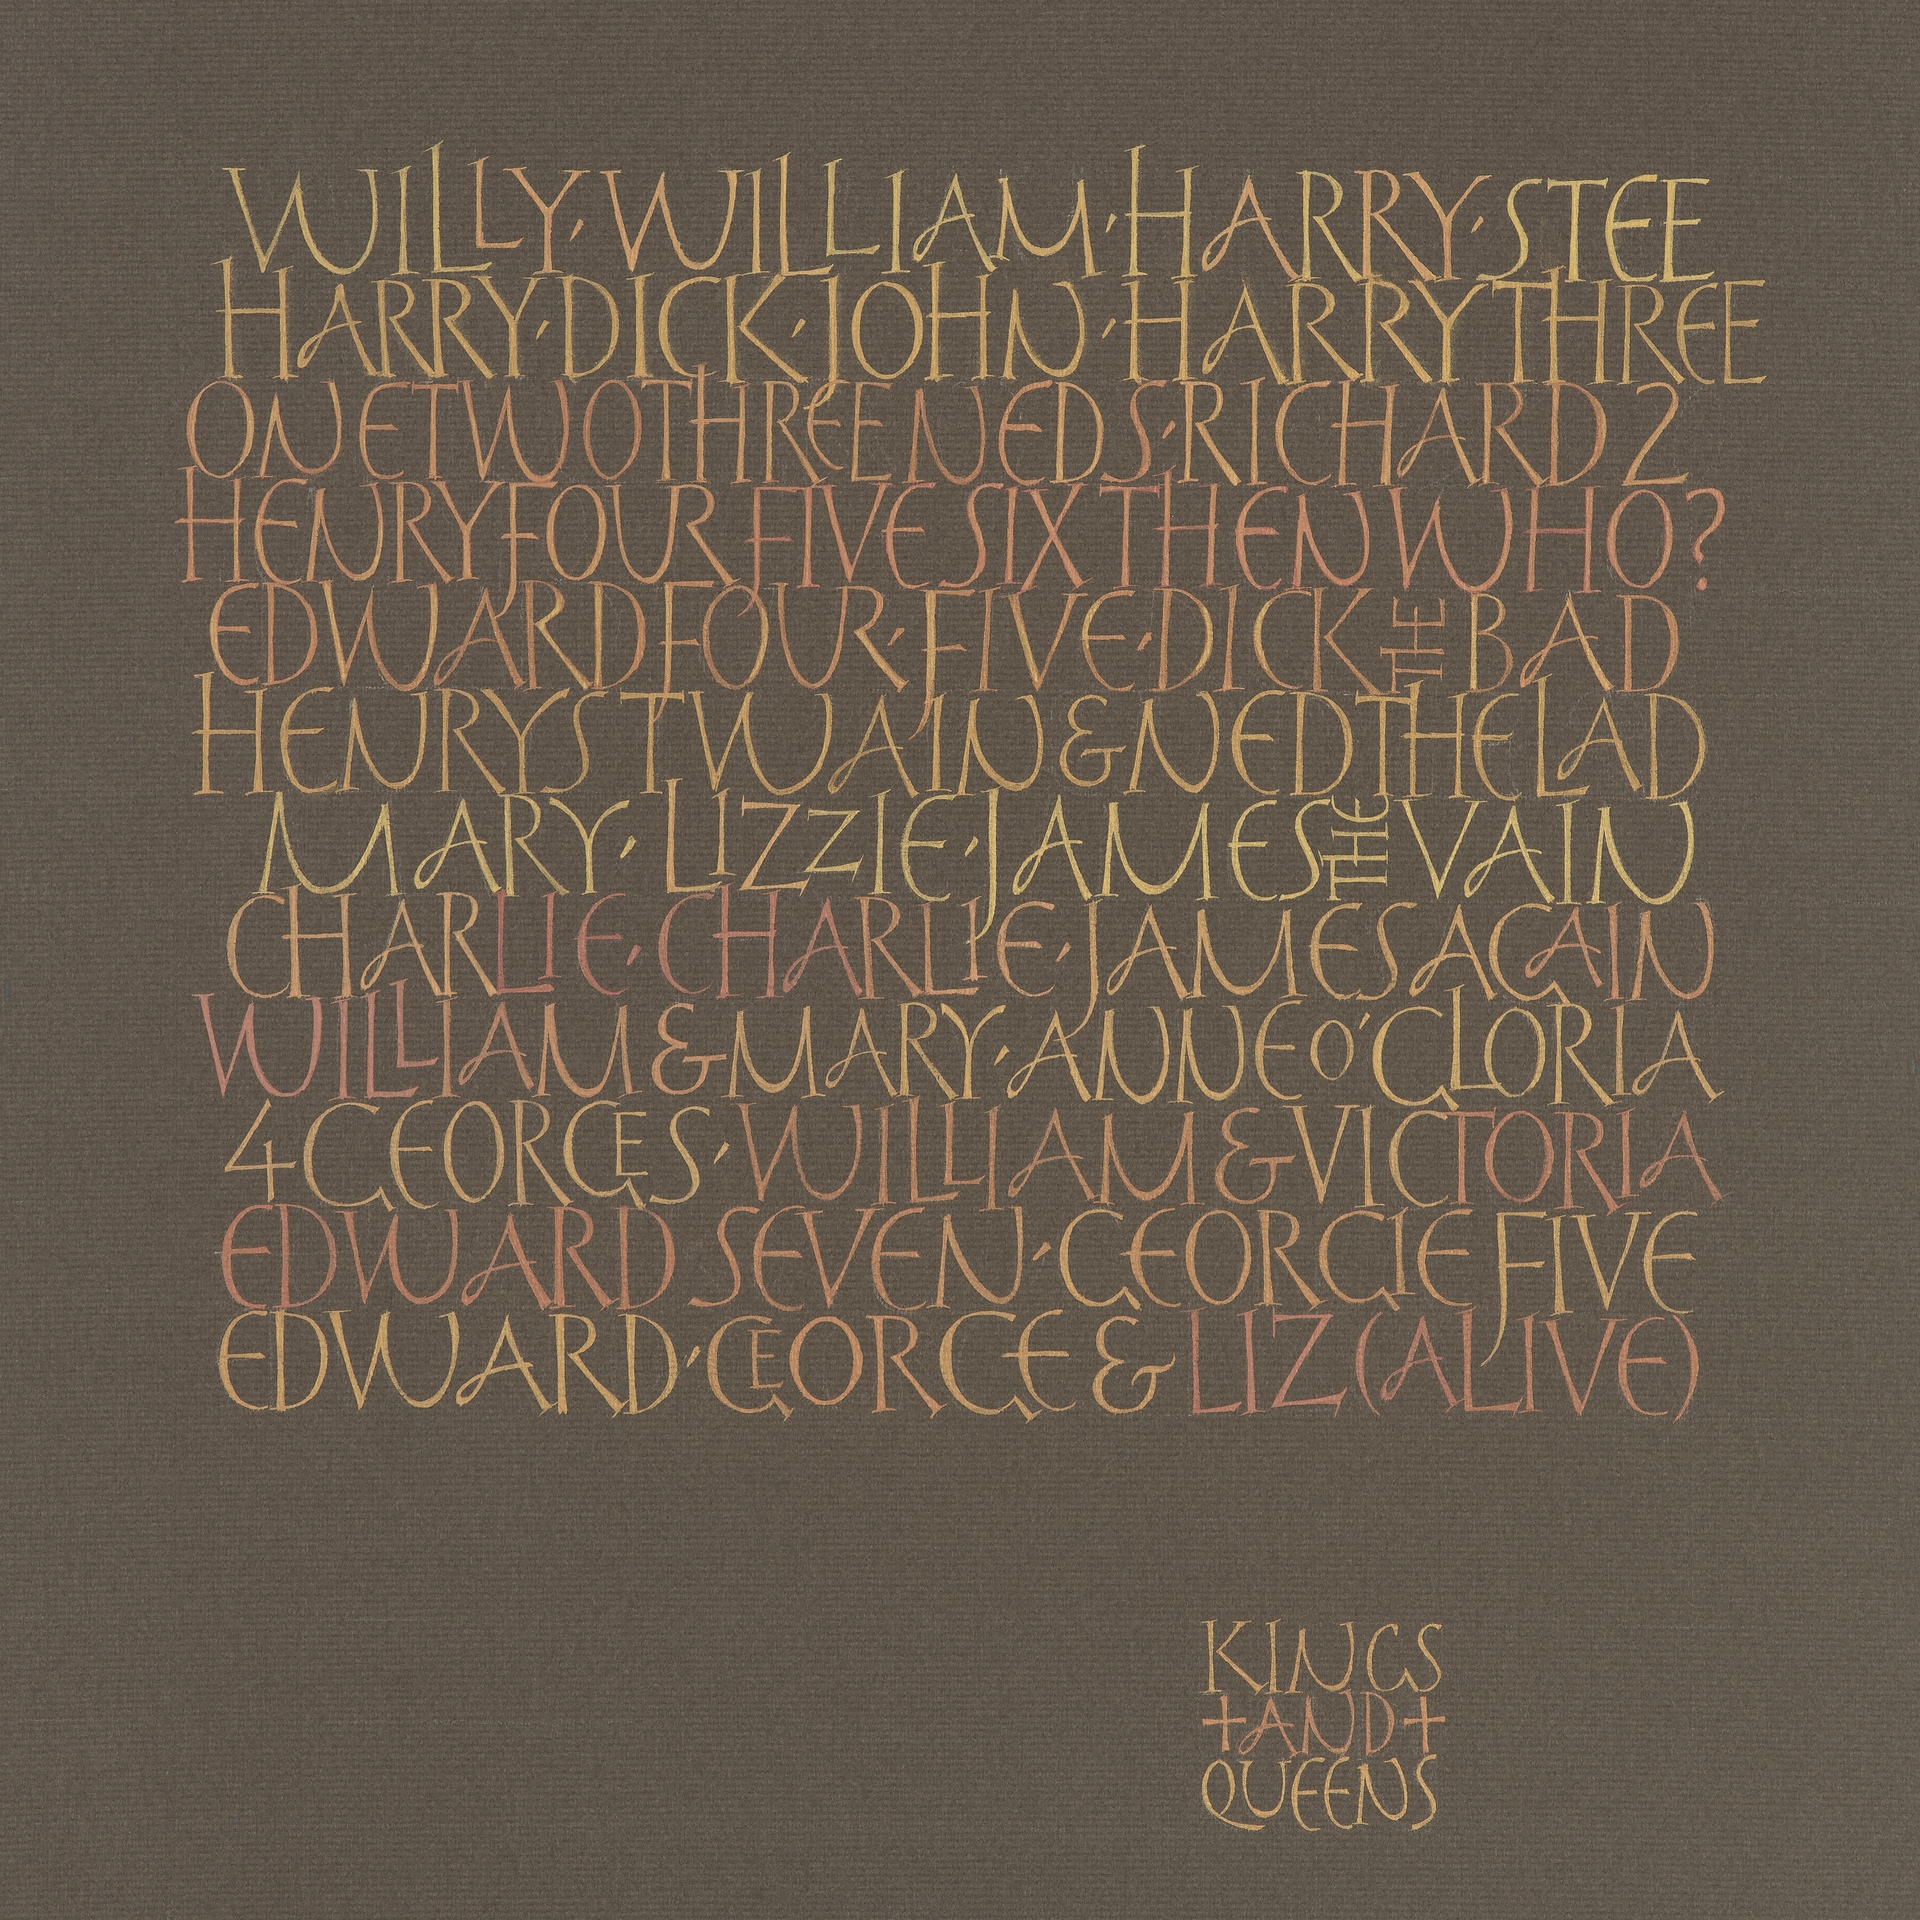 WILLY, WILLIAM, HARRY, STEE
HARRY, DICK, JOHN, HARRY THREE
ONE TWO THREE NEDS, RICHARD 2
HENRY FOUR FIVE SIX THEN WHO?
EDWARD FOUR, FIVE, DICK THE BAD
HENRYS TWAIN & NED THE LAD
MARY, LIZZIE, JAMES THE VAIN
CHARLIE, CHARLIE, JAMES AGAIN
WILLIAM & MARY, ANNE O' GLORIA
4 GEORGES, WILLIAM & VICTORIA
EDWARD SEVEN, GEORGIE FIVE
EDWARD, GEORGE & LIZ (ALIVE)
KINGS
+AND+
QUEENS